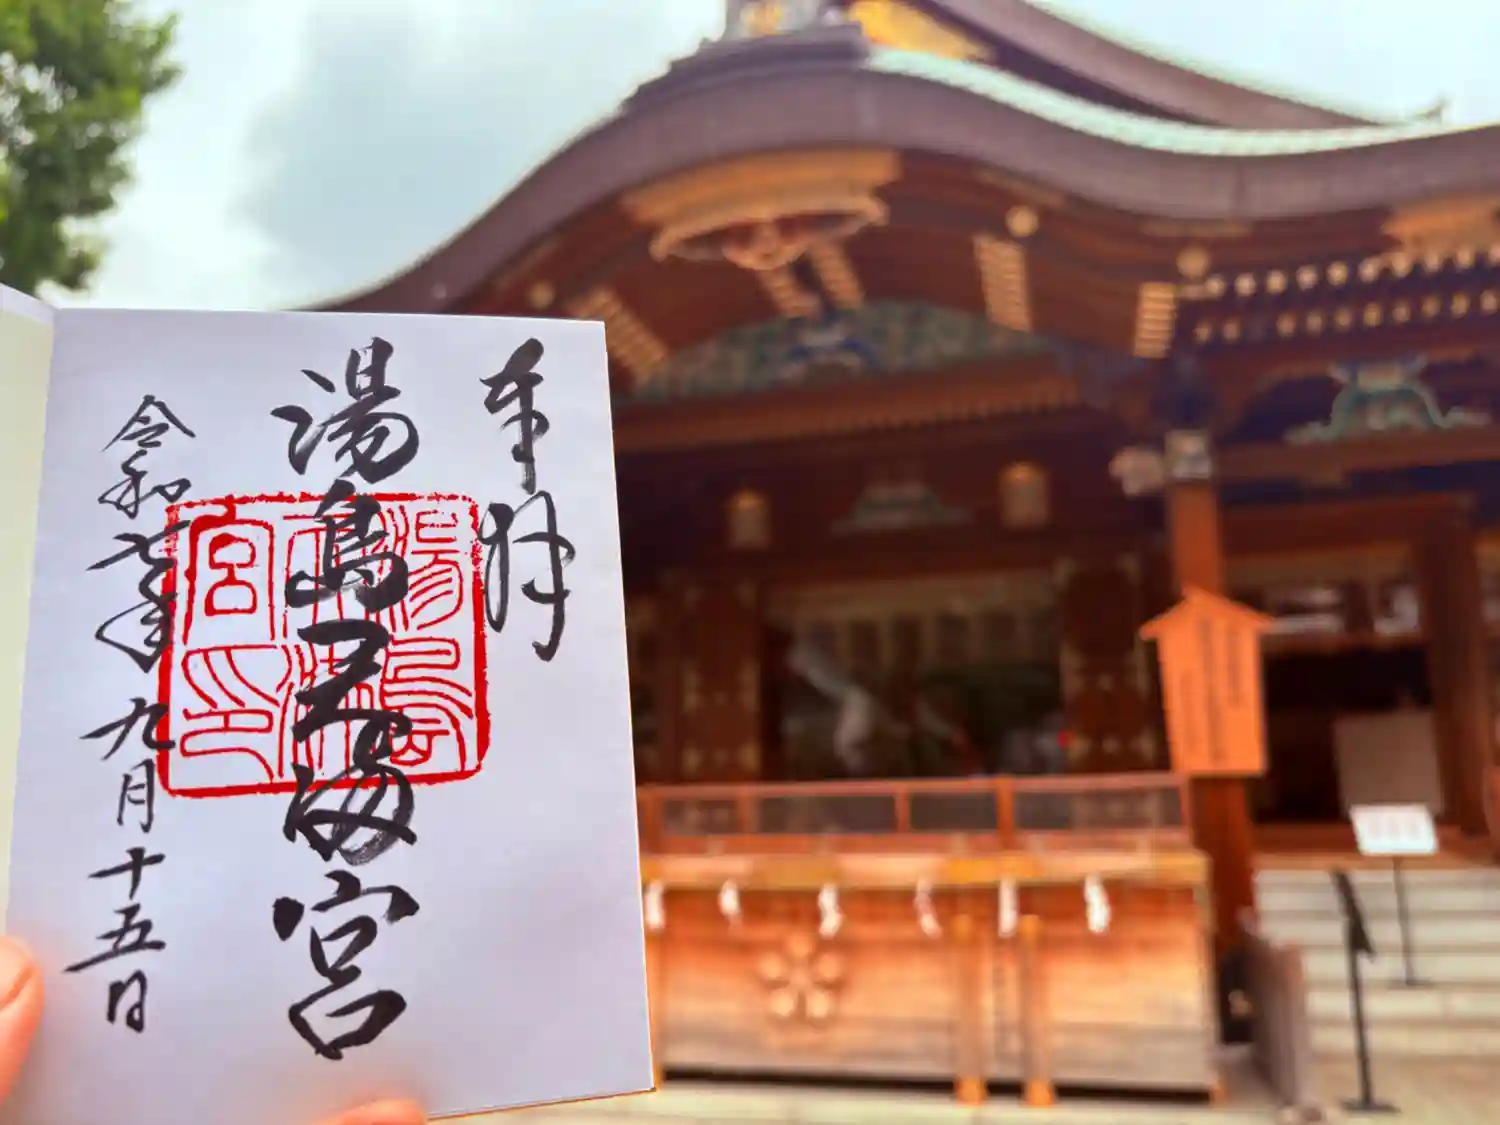 奉拝
湯島天満宮
湯島天満宮印
令和七年九月十五日